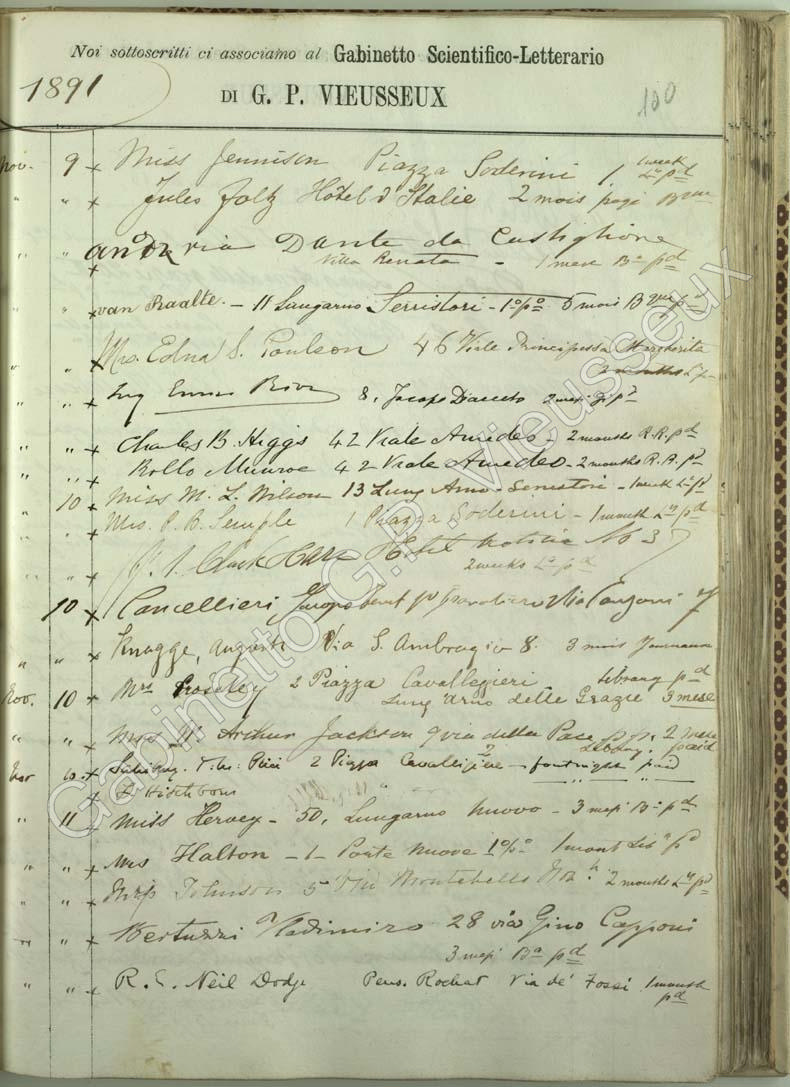 Noi sottoscritti ci associamo al Gabinetto Scientifico-Letterario
1891 DI G. P. VIEUSSEUX 100
Nov. 9 x Miss Jennison Piazza Soderini 1 week Ln pd
" " x Jules Foltz Hôtel d'Italie 2 mois payé
" " x via Dante da Castiglione
Villa Renata - 1 mese Ba pd
" " x van Raalte - 11 Lungarno Serristori - 1o po 6 mois B
" " x Mrs. Edna S. 46 Viale Principessa Margherita
2 months
" " x Ing 8, Jacopo Diacceto 2 mesi
" " x Charles B. Higgs 42 Viale Amedeo - 2 months R.R. pd
" " x Rollo Munroe 42 Viale Amedeo - 2 months R.R. pd
10 x Miss M. L. Wilson 13 Lung Arno Serristori - 1 week Ln pd
" x Mrs. P. B. Semple 1 Piazza Soderini - 1 month Ln pd
" x Hotel No 3
2 weeks Ln pd
10 x Cancellieri
" " x Knagge, August Via S. Ambrogio 8. 3 mois
Nov. 10 x Mrs 2 Piazza Cavallegieri Library pd
Lung'arno delle Grazie 3 mese
" " x Arthur Jackson 9 via della Pace 2 mese
Library. paid
Nov 10 x 2 Piazza fortnight paid
x " " "
" 11 x Miss Hervey - 50, Lungarno Nuovo - 3 mesi Ba pd
" " x Mrs Halton - 1 - Ponte Nuove 1o po 1 month pd
" " x Johnson 5 Via Montebello 2 months Ln pd
" " x Bertuzzi Vladimiro 28 via Gino Capponi
3 mesi Ba pd
" " x R. E. Neil Dodge Pens. Rochat Via de' Fossi 1 month
pd
Gabinetto G.P. Vieusseux